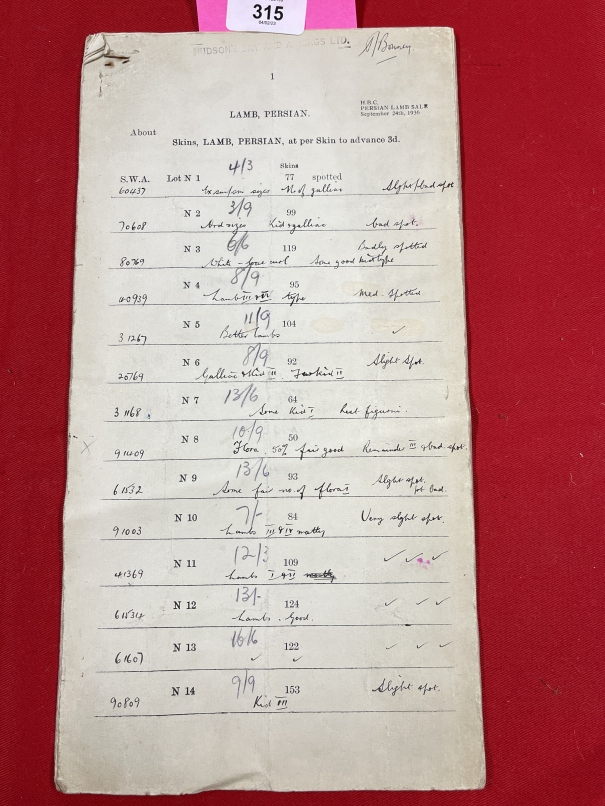 315
04/02/23
HUDSON'S BAY AND ANNINGS LTD.
1
H.B.C.
PERSIAN LAMB SALE
September 24th, 1936
LAMB, PERSIAN.
About
Skins, LAMB, PERSIAN, at per Skin to advance 3d.
4/3 Skins
S.W.A. Lot N 1 77 spotted
60437 sizes No of galliac Slght/bad spot
3/9
N 2 99
70608 sizes Kid & galliac bad spot.
6/6
N 3 119 Badly spotted
80769 White Some good Kid type
8/9
N 4 95
40939 Lambs III & IV type Med. Spotted
11/9
N 5 104 ✓
31267 Better lambs
8/9
N 6 92 Slight Spot.
20769 Galliac & Kid III. Kid II
13/6
N 7 64
31168 Some Kid I best figurani.
10/9
N 8 50
91409 Flora, 50% fair good Remainder III & bad. spot.
13/6
N 9 93 Slght spot.
61532 Some fair no. of flora I lot bad.
7/-
N 10 84 Very slght spot.
91003 Lambs III & IV matty
12/3
N 11 109 ✓ ✓ ✓
41369 Lambs I & II
13/-
N 12 124 ✓ ✓ ✓
61534 Lambs. Good.
16/6
N 13 122 ✓ ✓ ✓
61607 ✓ ✓
9/9
N 14 153 Slight spot.
90809 Kid III